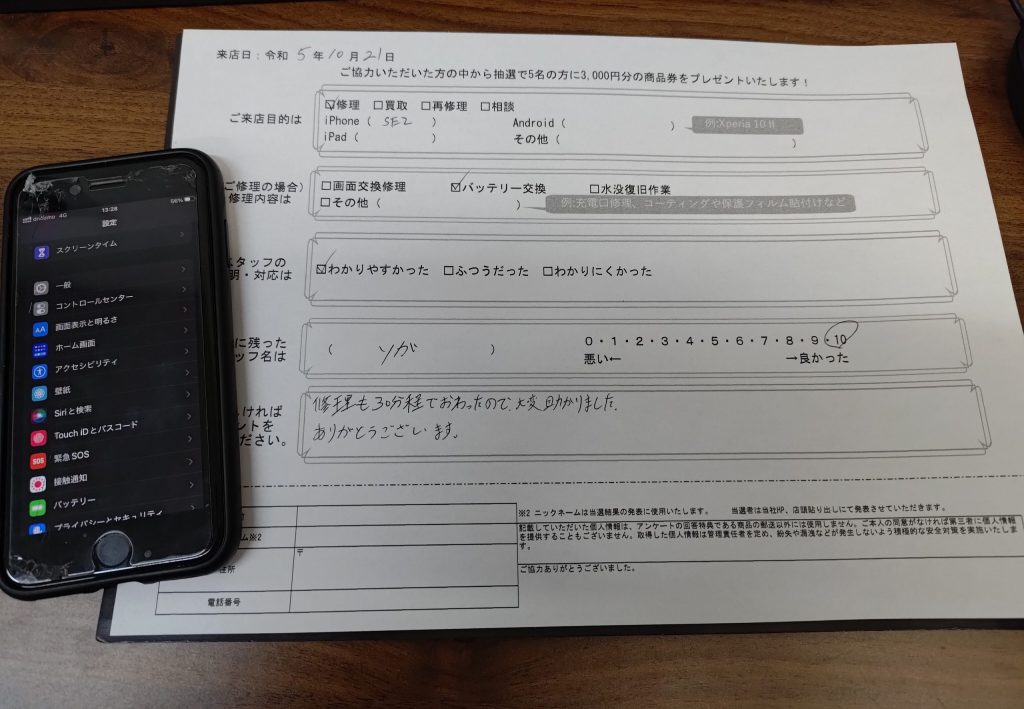 来店日：令和 5年10月21日
ご協力いただいた方の中から抽選で5名の方に3,000円分の商品券をプレゼントいたします！
ご来店目的は
☑修理 □買取 □再修理 □相談
iPhone（ SE2 ） Android（ ） 例:Xperia 10 Ⅱ
iPad（ ） その他（ ）
ご修理の場合）
修理内容は
□画面交換修理 ☑バッテリー交換 □水没復旧作業
□その他（ ） 例:充電口修理、コーティングや保護フィルム貼付けなど
スタッフの
明・対応は
☑わかりやすかった □ふつうだった □わかりにくかった
に残った
ッフ名は
（ ソガ ）
0・1・2・3・4・5・6・7・8・9・10
悪い← →良かった
しければ
ントを
ださい。
修理も30分程でおわったので、大変助かりました。
ありがとうございます。
ム※2
住所
〒
電話番号
※2 ニックネームは当選結果の発表に使用いたします。 当選者は当社HP、店頭貼り出しにて発表させていただきます。
記載していただいた個人情報は、アンケートの回答特典である商品の郵送以外には使用しません。ご本人の同意がなければ第三者に個人情報
を提供することもございません。取得した個人情報は管理責任者を定め、紛失や漏洩などが発生しないよう積極的な安全対策を実施いたしま
す。
ご協力ありがとうございました。
docomo 4G 13:28 56%
設定
スクリーンタイム
一般
コントロールセンター
AA 画面表示と明るさ
ホーム画面
アクセシビリティ
壁紙
Siriと検索
Touch IDとパスコード
SOS 緊急SOS
接触通知
バッテリー
プライバシーとセキュリティ